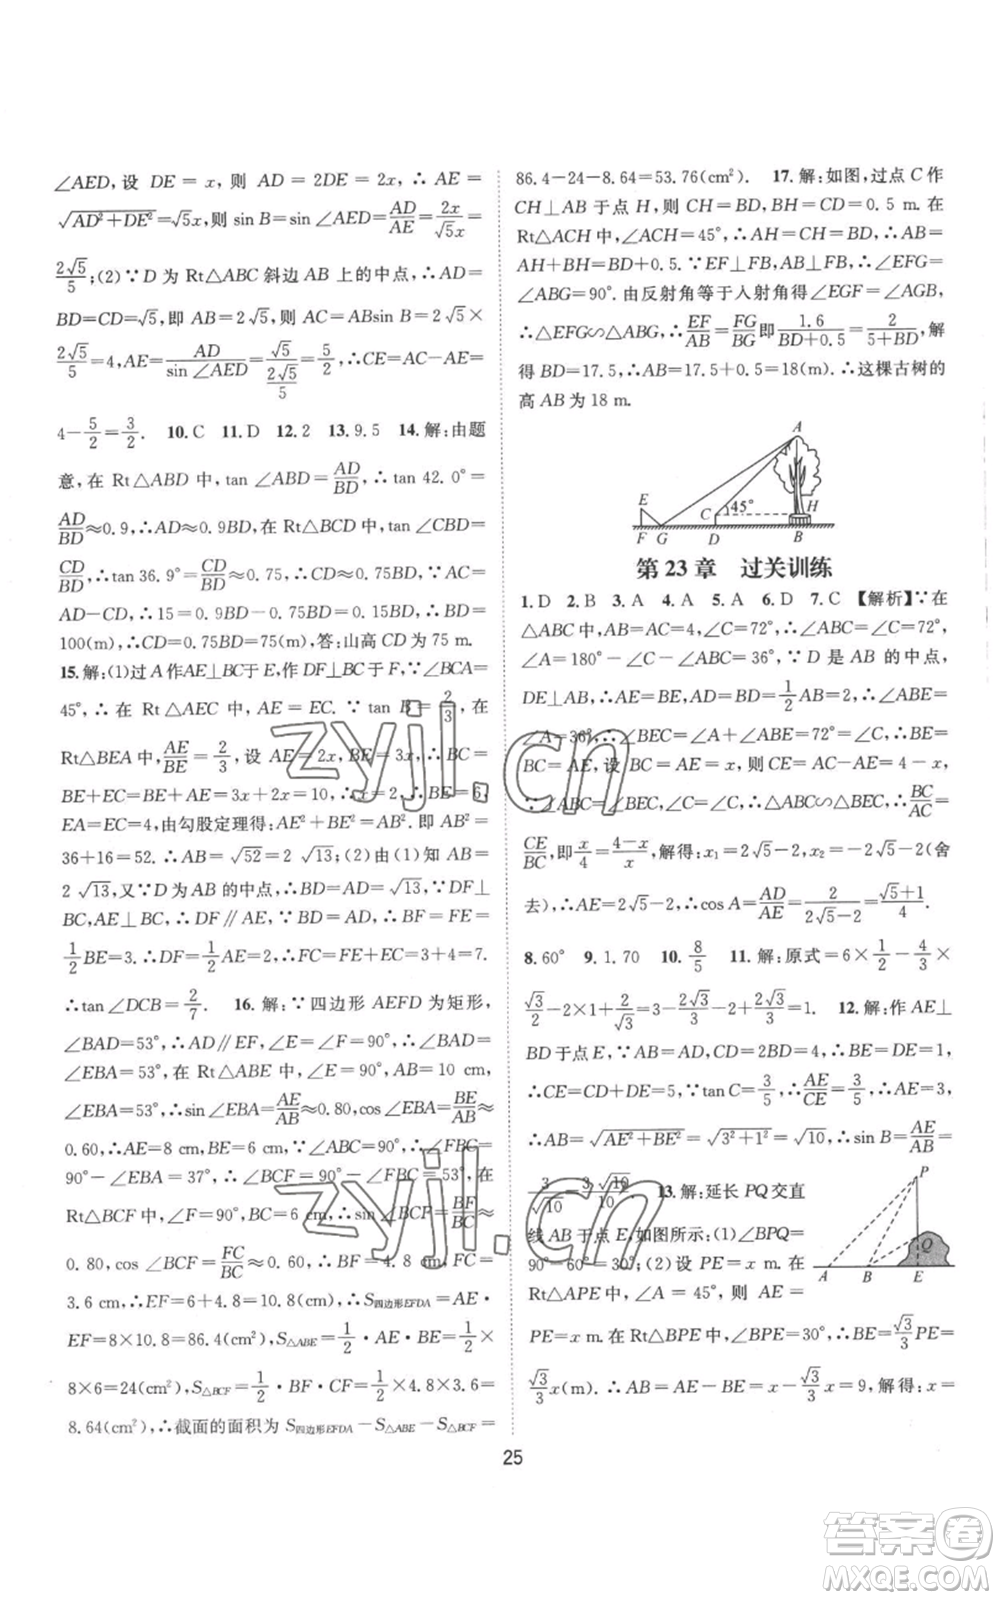 ∠AED,设 DE=x,则 AD=2DE=2x,∴AE=
√(AD²+DE²)=√5x,则 sin B=sin∠AED=AD/AE=2x/(√5x)=
2√5/5;(2)∵D 为 Rt△ABC 斜边 AB 上的中点,∴AD=
BD=CD=√5,即 AB=2√5,则 AC=ABsin B=2√5×
2√5/5=4,AE=AD/(sin∠AED)=√5/(2√5/5)=5/2,∴CE=AC-AE=
4-5/2=3/2. 10.C 11.D 12.2 13.9.5 14.解:由题
意,在 Rt△ABD 中,tan∠ABD=AD/BD,∴tan 42.0°=
AD/BD≈0.9,∴AD≈0.9BD,在 Rt△BCD 中,tan∠CBD=
CD/BD,∴tan 36.9°=CD/BD≈0.75,∴CD≈0.75BD,∵
AD-CD=15,∴0.9BD-0.75BD=15,∴BD=
100(m),∴CD=0.75BD=75(m),答:山高 CD 为 75 m.
15.解:(1)过 A 作AE⊥BC于E,作 DF⊥BC于 F,∵∠BCA=
45°,∴在 Rt△AEC 中,AE=EC.∵tan B=2/3,在
Rt△BEA 中,AE/BE=2/3,设 AE=2x,BE=3x,∴BC=
BE+EC=BE+AE=3x+2x=10,∴x=2,∴BE=6,
EA=EC=4,由勾股定理得:AE²+BE²=AB².即 AB²=
36+16=52.∴AB=√52=2√13;(2)由(1)知 AB=
2√13,又∵D 为 AB 的中点,∴BD=AD=√13.∵DF⊥
BC,AE⊥BC,∴DF∥AE,∵BD=AD,∴BF=FE=
1/2BE=3.∴DF=1/2AE=2,∴CF=FE+EC=3+4=7.
∴tan∠DCB=2/7. 16.解:∵四边形 AEFD 为矩形,
∠BAD=53°,∴AD∥EF,∠E=∠F=90°,∴
∠EBA=53°,∴在 Rt△ABE 中,∠E=90°,AB=10 cm,
∠EBA=53°,∴sin∠EBA=AE/AB≈0.80,cos∠EBA=BE/AB≈
0.60,∴AE=8 cm,BE=6 cm,∵∠ABC=90°,∴∠FBC=
90°-∠EBA=37°,∴∠BCF=90°-∠FBC=53°,在
Rt△BCF 中,∠F=90°,BC=6 cm,∴sin∠BCF=BF/BC≈
0.80,cos∠BCF=FC/BC≈0.60,∴BF=4.8 cm,FC=
3.6 cm,∴EF=6+4.8=10.8(cm),∴S四边形EFDA=AE·
EF=8×10.8=86.4(cm²),S△ABE=1/2·AE·BE=1/2×
8×6=24(cm²),S△BCF=1/2·BF·CF=1/2×4.8×3.6=
8.64(cm²),∴截面的面积为 S四边形EFDA-S△ABE-S△BCF=
86.4-24-8.64=53.76(cm²). 17.解:如图,过点 C 作
CH⊥AB 于点 H,则 CH=BD,BH=CD=0.5 m.在
Rt△ACH 中,∠ACH=45°,∴AH=CH=BD,∴AB=
AH+BH=BD+0.5.∵EF⊥FB,AB⊥FB,∴∠EFG=
∠ABG=90°.由反射角等于入射角得∠EGF=∠AGB,
∴△EFG∽△ABG,∴EF/AB=FG/BG即1.6/(BD+0.5)=2/(5+BD),解
得 BD=17.5,∴AB=17.5+0.5=18(m).∴这棵古树的
高 AB 为 18 m.
A
E
C 45° H
F G D B
第23章 过关训练
1.D 2.B 3.A 4.A 5.A 6.D 7.C 【解析】∵在
△ABC 中,AB=AC=4,∠C=72°,∴∠ABC=∠C=72°,
∠A=180°-∠ABC-∠C=36°,∵D 是 AB 的中点,
DE⊥AB,∴AE=BE,AD=BD=1/2AB=2,∴∠ABE=
∠A=36°,∴∠BEC=∠A+∠ABE=72°=∠C,∴BE=
BC=AE,设 BC=AE=x,则CE=AC-AE=4-x,
∵∠ABC=∠BEC=∠C,∴△ABC∽△BCE,∴BC/AC=
CE/BC,即x/4=(4-x)/x,解得:x₁=2√5-2,x₂=-2√5-2(舍
去),∴AE=2√5-2,∴cos A=AD/AE=2/(2√5-2)=(√5+1)/4.
8.60° 9.1.70 10.8/5 11.解:原式=6×1/2-4/3×
√3/2-2×1+2/√3=3-2√3/3-2+2√3/3=1. 12.解:作 AE⊥
BD 于点 E,∵AB=AD,CD=2BD=4,∴BE=DE=1,
∴CE=CD+DE=5.∵tan C=3/5,∴AE/CE=3/5,∴AE=3,
∴AB=√(AE²+BE²)=√(3²+1²)=√10,∴sin B=AE/AB=
3/√10=3√10/10. 13.解:延长 PQ 交直
线 AB 于点 E,如图所示:(1)∠BPQ=
90°-60°=30°;(2)设 PE=x m.在
Rt△APE 中,∠A=45°,则 AE=
PE=x m.在 Rt△BPE 中,∠BPE=30°,∴BE=√3/3PE=
√3/3x(m).∵AB=AE-BE,∴x-√3/3x=9,解得:x=
P
Q
A B E
25
zyjl.cn
zyjl.cn
答案圈
MXQE.COM